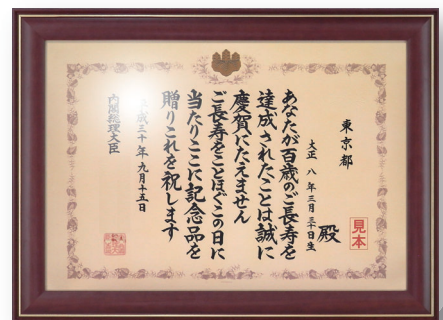 東京都
大正 八年三月三十日生
殿
見本
あなたが百歳のご長寿を
達成されたことは誠に
慶賀にたえません
ご長寿をことほぐこの日に
当たりここに記念品を
贈りこれを祝します
成三十年 九月十五日
内閣総理大臣